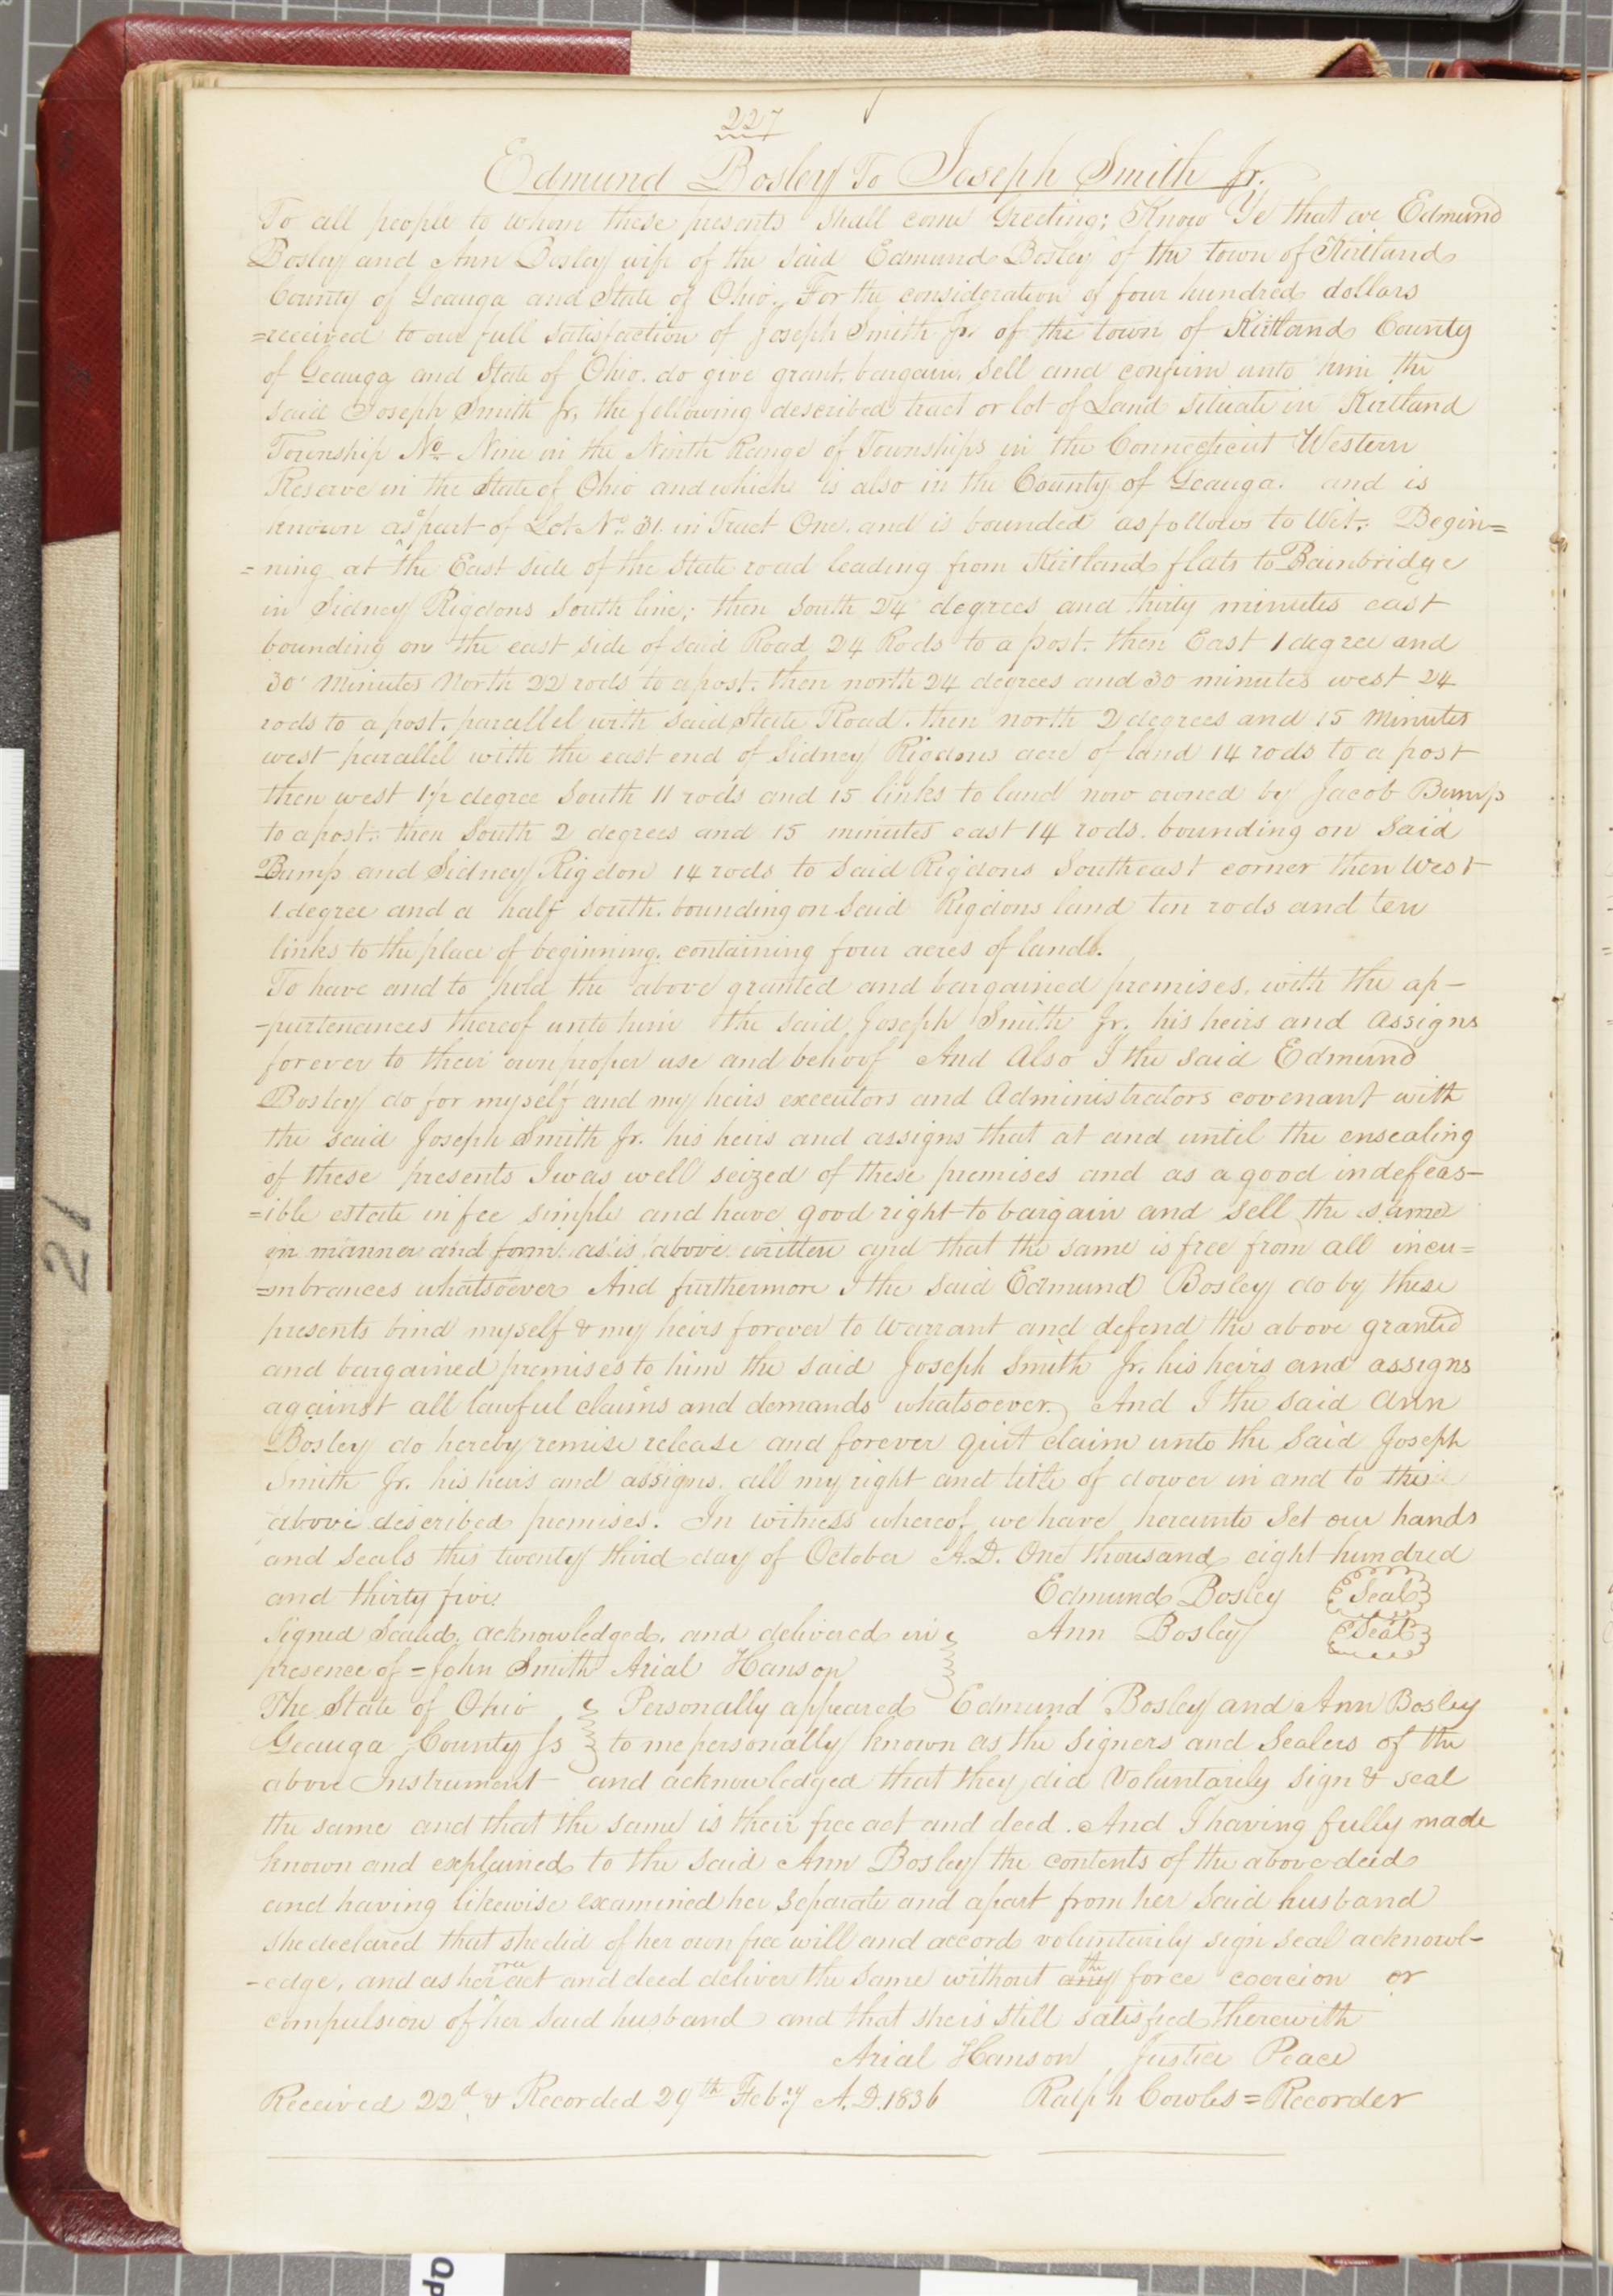 227
Edmund Bosley To Joseph Smith Jr.
To all people to whom these presents shall come Greeting; Know Ye that we Edmund
Bosley and Ann Bosley wife of the said Edmund Bosley of the town of Kirtland
County of Geauga and State of Ohio, For the consideration of four hundred dollars
=received to our full satisfaction of Joseph Smith Jr. of the town of Kirtland County
of Geauga and State of Ohio. do give grant, bargain, sell and confirm unto him the
said Joseph Smith Jr, the following described tract or lot of Land situate in Kirtland
Township No Nine in the Ninth Range of Townships in the Connecticut Western
Reserve in the State of Ohio and which is also in the County of Geauga. and is
known as a part of Lot No 31. in Tract One. and is bounded as follows to Wit,: Begin=
=ning at the East side of the State road leading from Kirtland flats to Bainbridge
in Sidney Rigdons South line; then South 24 degrees and thirty minutes east
bounding on the east side of said Road 24 Rods to a post. then East 1 degree and
30' Minutes North 22 rods to a post. then north 24 degrees and 30 minutes west 24
rods to a post. parallel with said State Road. then north 2 degrees and 15 Minutes
west parallel with the east end of Sidney Rigdons acre of land 14 rods to a post
then west 1½ degree South 11 rods and 15 links to land now owned by Jacob Bump
to a post. then South 2 degrees and 15 minutes east 14 rods. bounding on Said
Bump and Sidney Rigdon 14 rods to Said Rigdons Southeast corner then West
1 degree and a half South. bounding on Said Rigdons land ten rods and ten
links to the place of beginning. containing four acres of land.
To have and to hold the above granted and bargained premises. with the ap-
-purtenances thereof unto him the said Joseph Smith Jr. his heirs and Assigns
forever to their own proper use and behoof And Also I the said Edmund
Bosley do for myself and my heirs executors and Administrators covenant with
the said Joseph Smith Jr. his heirs and assigns that at and until the ensealing
of these presents I was well seized of these premises and as a good indefeas-
=ible estate in fee simple and have good right to bargain and sell the same
in manner and form. as is above written and that the same is free from all incu=
=mbrances whatsoever And furthermore I the said Edmund Bosley do by these
presents bind myself & my heirs forever to Warrant and defend the above granted
and bargained premises to him the said Joseph Smith Jr. his heirs and assigns
against all lawful claims and demands whatsoever. And I the said Ann
Bosley do hereby remise release and forever quit claim unto the Said Joseph
Smith Jr. his heirs and assigns. all my right and title of dower in and to the
above described premises. In witness whereof we have hereunto Set our hands
and Seals this twenty third day of October A.D. One thousand eight hundred
and thirty five. Edmund Bosley Seal
Signed Sealed, acknowledged, and delivered in Ann Bosley Seal
presence of = John Smith Arial Hanson
The State of Ohio Personally appeared Edmund Bosley and Ann Bosley
Geauga County Ss to me personally known as the Signers and Sealers of the
above Instrument and acknowledged that they did Voluntarily Sign & seal
the same and that the same is their free act and deed. And I having fully made
known and explained to the said Ann Bosley the contents of the above deed
and having likewise examined her Separate and apart from her Said husband
she declared that she did of her own free will and accord voluntarily sign seal acknowl-
-edge, and as her free act and deed deliver the same without any the force coercion or
compulsion of her Said husband and that she is still satisfied therewith
Arial Hanson Justice Peace
Received 22d & Recorded 29th Feby A.D. 1836 Ralph Cowles = Recorder
21